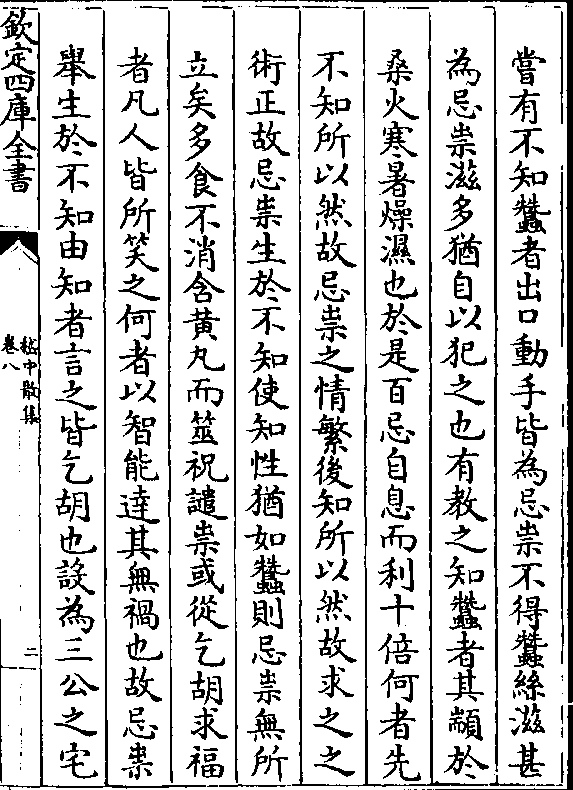 嘗有不知蠶者出口動手皆為忌祟不得蠶絲滋甚
為忌祟滋多猶自以犯之也有教之知蠶者其顓於
桑火寒暑燥濕也於是百忌自息而利十倍何者先
不知所以然故忌祟之情繁後知所以然故求之之
術正故忌祟生於不知使知性猶如蠶則忌祟無所
立矣多食不消含黄丸而筮祝譴祟或從乞胡求福
者凡人皆所笑之何者以智能達其無禍也故忌祟
舉生於不知由知者言之皆乞胡也設為三公之宅
欽定四庫全書
嵇中散集
卷八
二